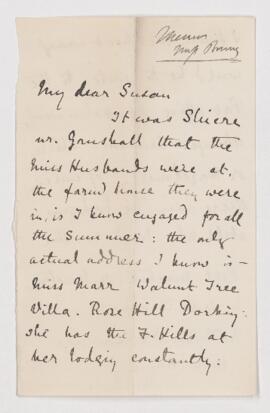 My dear Susan
It was Shiere
nr. Gomshall that the
Miss Husbands were at,
the farm house they were
in, is I know engaged for all
the Summer: the only
actual address I know is -
Miss Marr Walnut Tree
Villa. Rose Hill Dorking:
she has the F. Hills at
her lodging constantly: